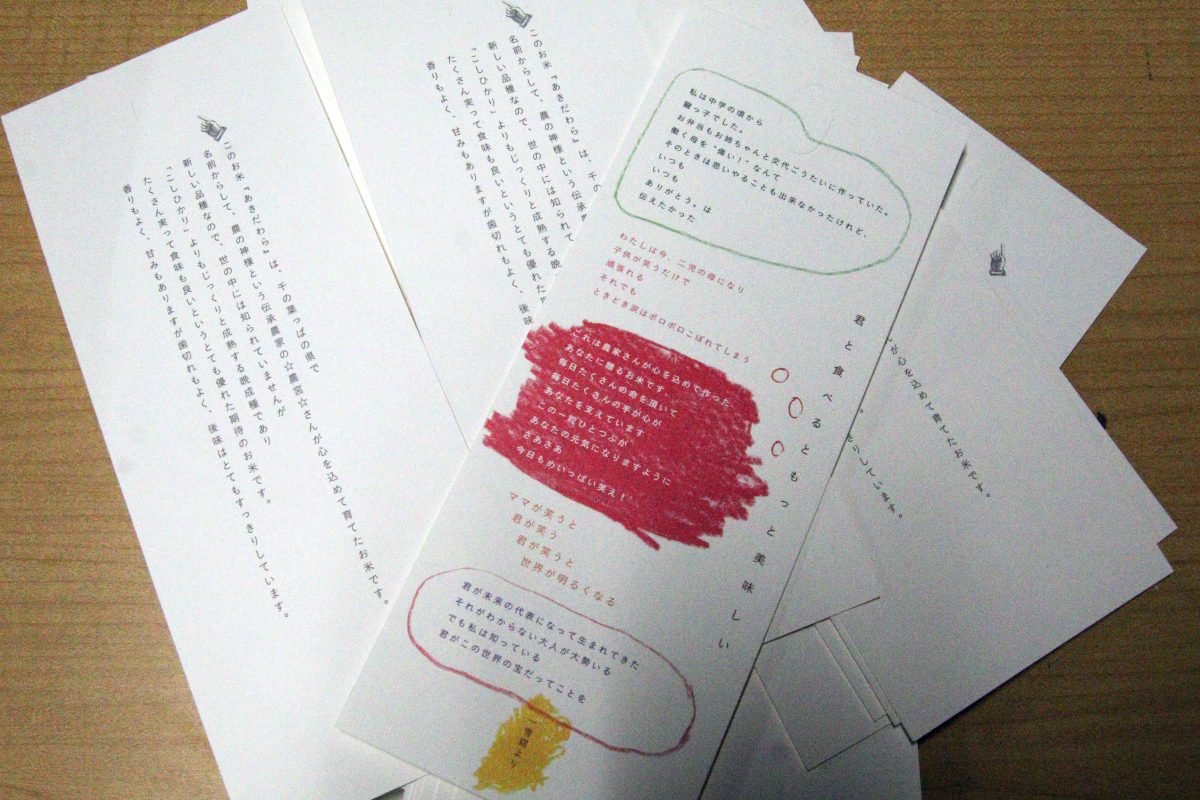 このお米『あきだわら』は、千の葉っぱの県で
名前からして、農の神様という伝承農家の☆農宮☆さんが心を込めて育てたお米です。
新しい品種なので、世の中には知られていませんが
「こしひかり」よりもじっくりと成熟する晩成種であり
たくさん実って食味も良いというとても優れた期待のお米です。
香りもよく、甘みもありますが歯切れもよく、後味はとてもすっきりしています。
このお米『あきだわら』は、千の
名前からして、農の神様という伝承農
新しい品種なので、世の中には知られて
「こしひかり」よりもじっくりと成熟する晩
たくさん実って食味も良いというとても優れた期
香りもよく、甘みもありますが歯切れもよく、後味
君と食べるともっと美味しい
私は中学の頃から
鍵っ子でした。
お弁当もお姉ちゃんと交代ごうたいに作っていた。
働く母を"偉い！"なんて
そのときは思いやることも出来なかったけれど、
いつも
いつも
ありがとう。は
伝えたかった
わたしは今、二児の母になり
子供が笑うだけで
頑張れる
それでも
ときどき涙はポロポロこぼれてしまう
これは農家さんが心を込めて作った
あなたに贈るお米です
毎日たくさんの命を頂いて
毎日たくさんの手が心が
あなたを支えています
この一粒ひとつぶが
あなたの元気になりますように
さあさあ
今日もめいっぱい笑え！
ママが笑うと
君が笑う
君が笑うと
世界が明るくなる
君が未来の代表になって生まれてきた
それがわからない大人が大勢いる
でも私は知っている
君がこの世界の宝だってことを
より
が心を込めて育てたお米です。
。
もりしています。